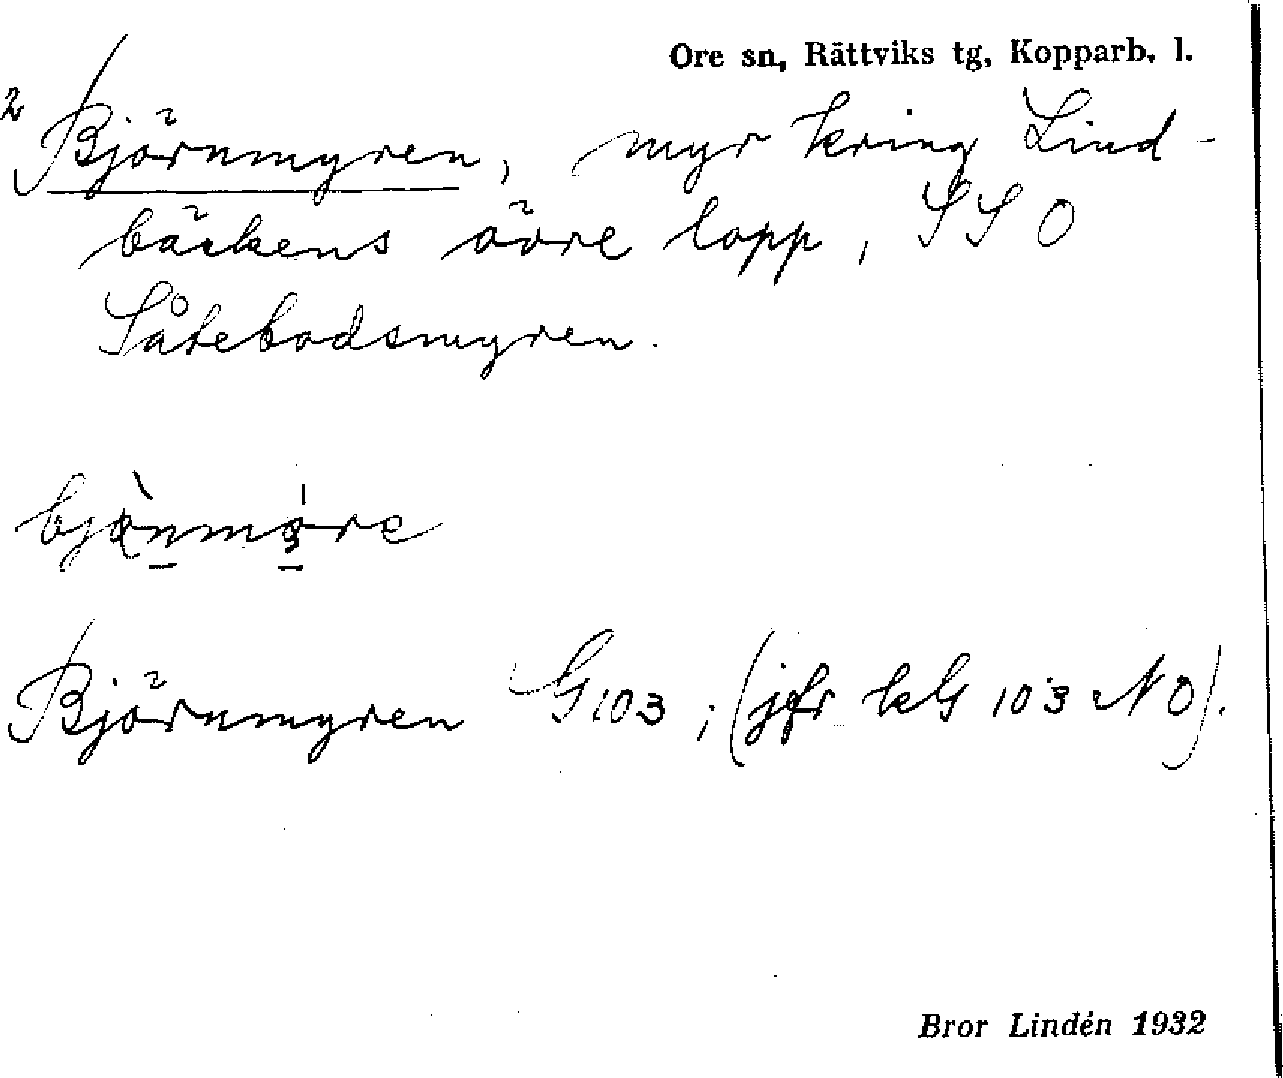 Ore sn, Rättviks tg, Kopparb. l.
2
Björnmyren, myr kring Lind-
bäckens övre lopp, SSO
Såtebodsmyren.
Björnmyren G103; (jfr kG 103 NO).
Bror Lindén 1932